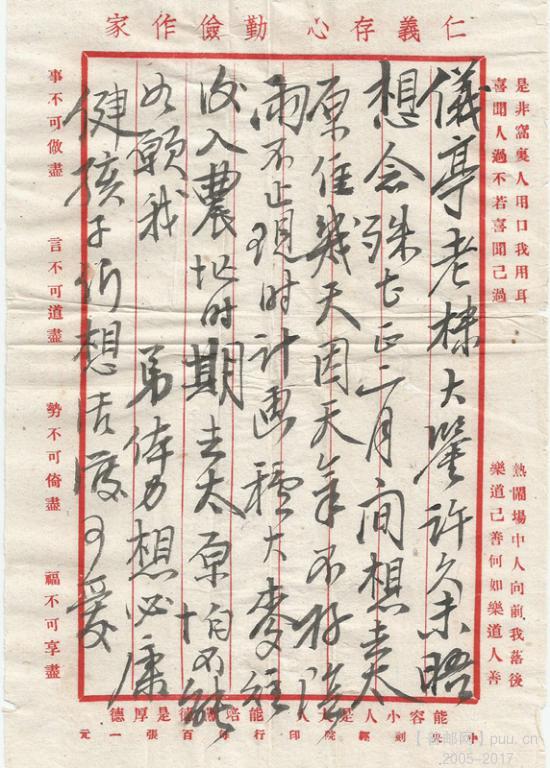 仁義存心 勤儉作家
是非窩裏人用口我用耳
熱鬧場中人向前我落後
喜聞人過不若喜聞己過
樂道己善何如樂道人善
儀亭老棣大鑒許久未晤
想念殊甚正二月間想去太
原住幾天因天氣不好陰
雨不止現时计画種大麥
入農忙时期去太原怕不能
如願我 弟体力想必康
健孩子们想活潑可爱
事不可做盡 言不可道盡 勢不可倚盡 福不可享盡
能容小人是大人 能培薄德是厚德
中央刻經院印行 每百張一元
puu.cn
2005-2017